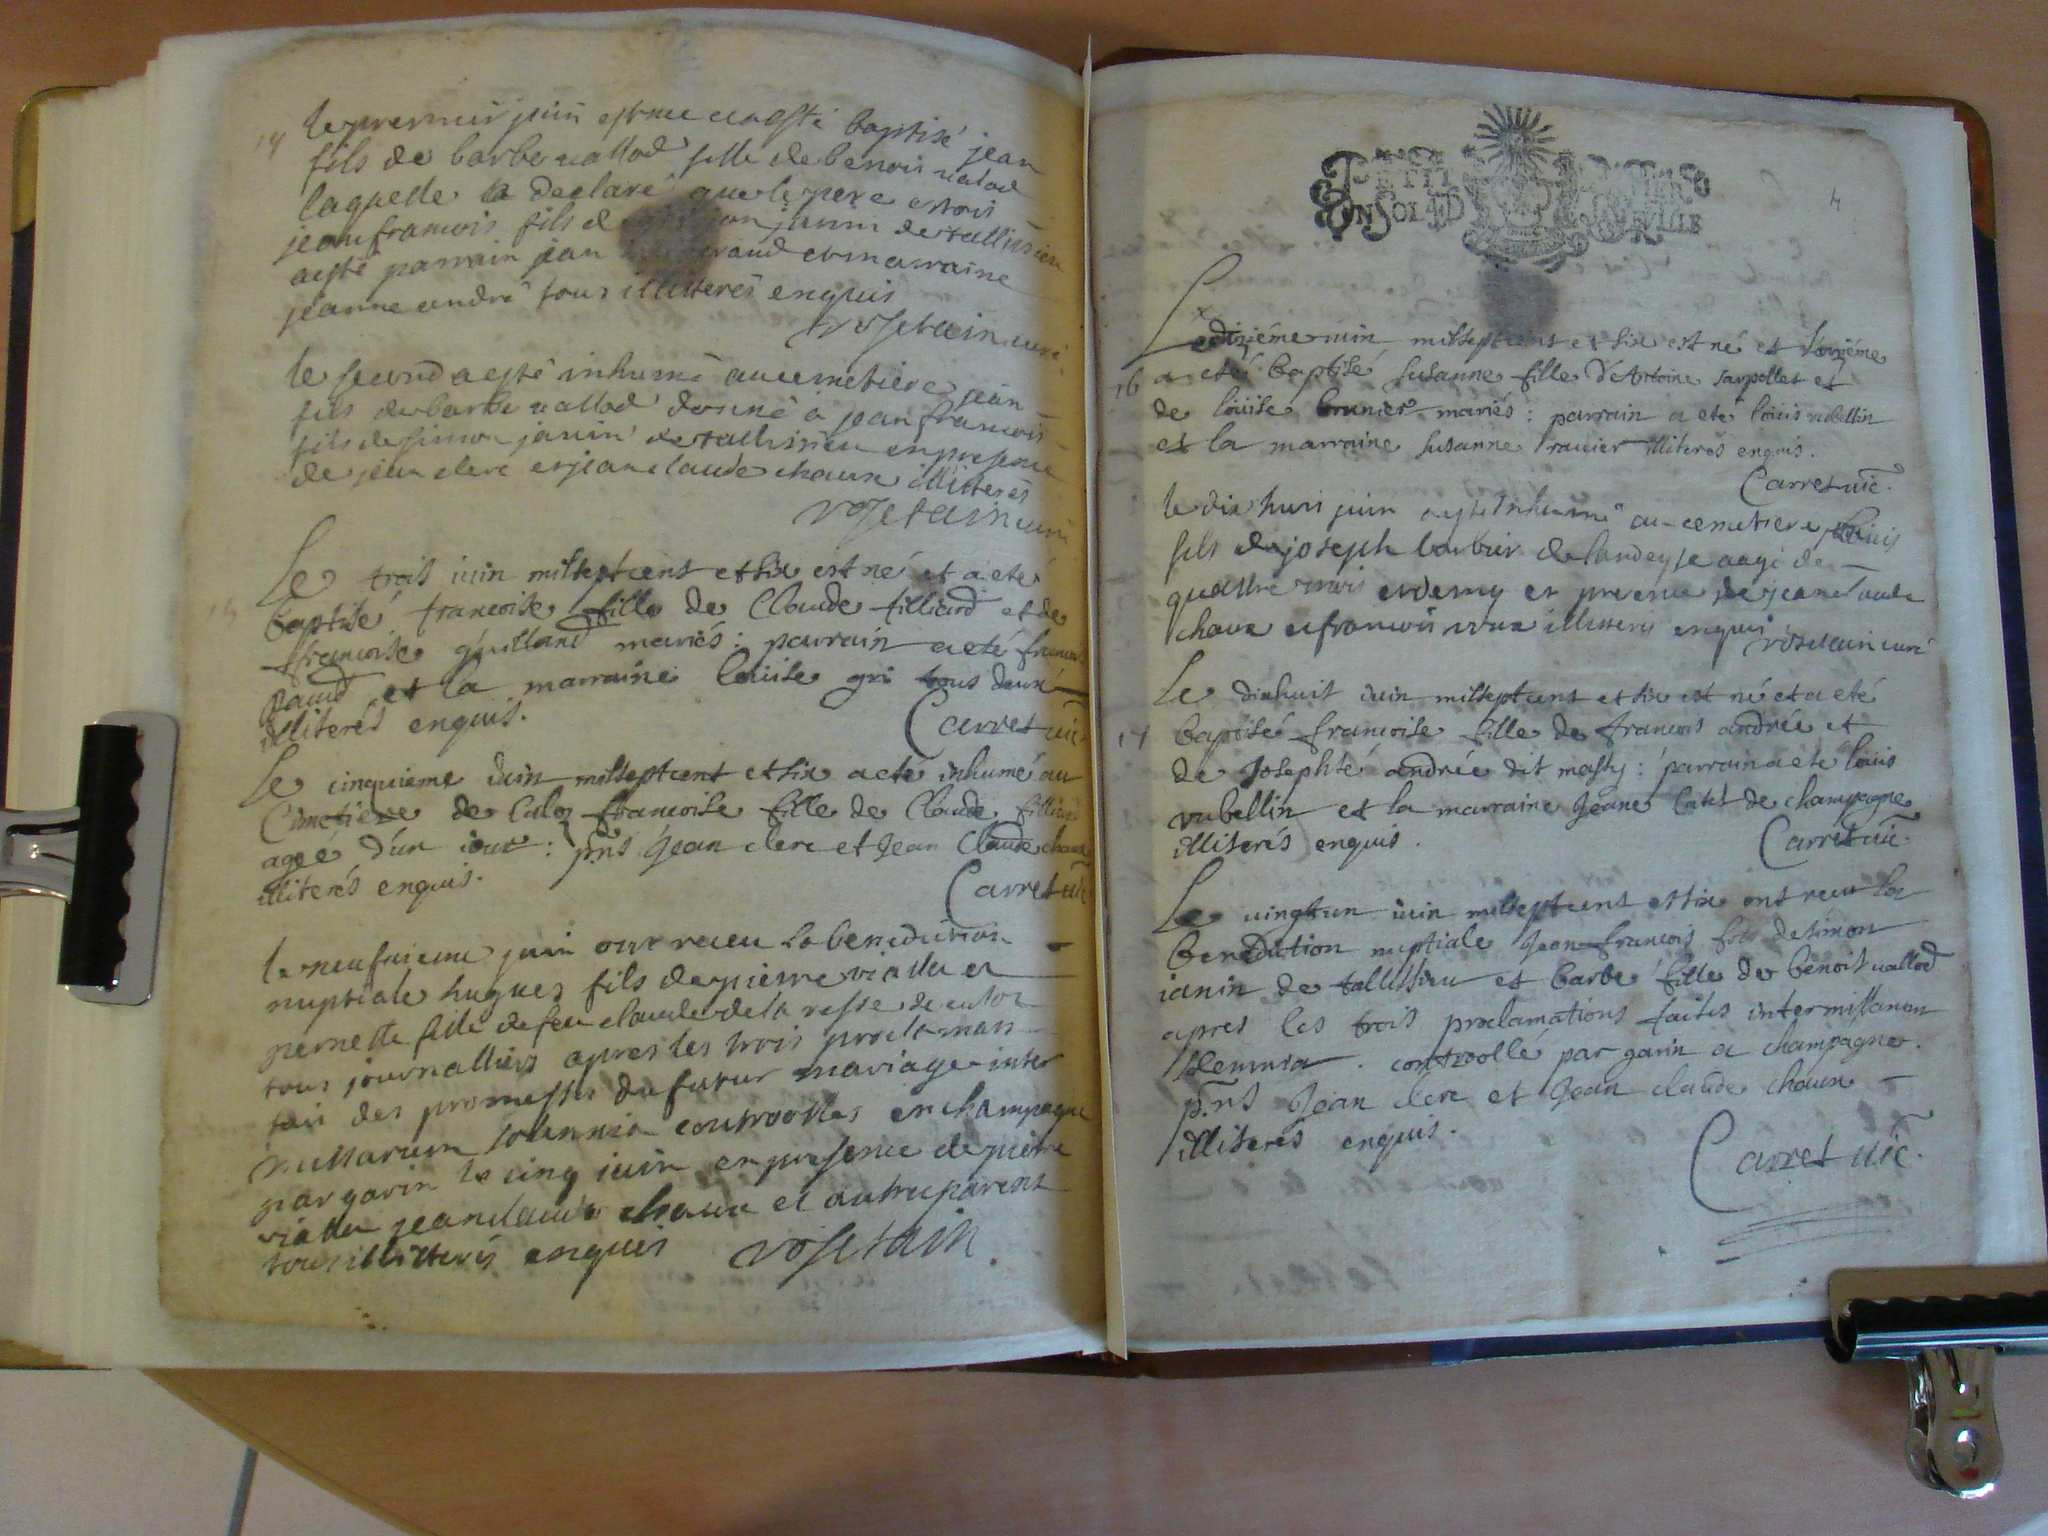 14
le premier juin est nee et a esté baptisé jean
fils de barbe vallod fille de benoit valod
laquelle a declaré que le pere estois
jean francois fils de simon janin de tallissieu
a esté parrain jean et marraine
jeanne andre tous illitterés enquis
rosetain curé
le second a esté inhumé au cemetiere jean
fils de barbe vallod donné a jean francois
fils de simon janin de tallissieu en presence
de jean clerc et jean claude chaux illitterés
rosetain curé
Le trois iuin milseptcent et six est né et a eté
15 baptisé francoise fille de Claude filliard et de
francoise guilland mariés : parrain a eté francois
paud et la marraine louise gri tous deux
illiterés enquis.
Carret vic
Le cinquieme iuin milseptcent et six a eté inhumé au
Cimetiere de Culoz francoise fille de Claude filliard
agee d'un iour : pñs Jean clerc et Jean Claude chaux
illiterés enquis.
Carret vic
le neufvieme juin ont receu la benediction
nuptiale hugues fils de pierre viallu et
pernette fille de feu claude de la resse de culoz
tous journalliers apres les trois proclamaõns
fait des promesses du futur mariage inter
missarum solemnia controolles en champagne
par garin le cinq iuin en presence de pierre
viallu jean claude chaux et autres parents
tous illitterés enquis rosetain
4
Le dixiéme iuin milseptcens et six est né et le onziéme
16 a eté baptisé susanne fille d'Antoine sarpollet et
de loüise brunier mariés : parrain a eté loüis rubellin
et la marraine susanne travier illiterés enquis.
Carret vic.
le dix huit juin a esté inhumé au cemetiere loüis
fils de joseph barbier de landeyse aagé de
quattre mois et demy en presence de jean claude
chaux et francois roux illitterés enquis rosetain curé
Le dixhuit iuin milseptcens et six est né et a eté
17 baptisé francoise fille de francois andrée et
de Josephté andrée dit masty : parrain a eté loüis
rubellin et la marraine Jeane de champagne
illiterés enquis.
Carret vic.
Le vingtun iuin milseptcens et six ont receu la
benediction nuptiale Jean francois fils de simon
ianin de tallissieu et barbe fille de benoit vallod
apres les trois proclamations faites intermissarum
solemnia. controollé par garin a champagne.
pñs Jean clerc et Jean claude chaux
illiterés enquis.
Carret vic.